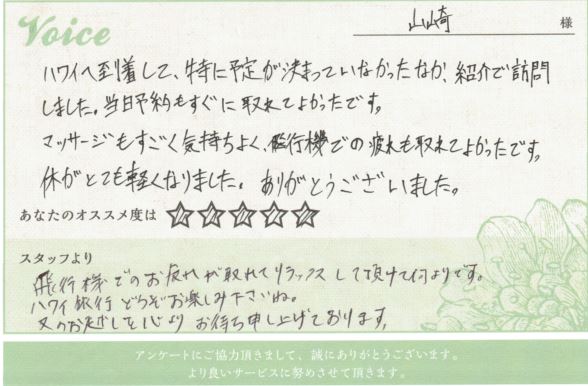 Voice
山崎 様
ハワイへ到着して、特に予定が決まっていなかったなか、紹介で訪問
しました。当日予約もすぐに取れてよかったです。
マッサージもすごく気持ちよく、飛行機での疲れも取れてよかったです。
体がとても軽くなりました。ありがとうございました。
あなたのオススメ度は ☆☆☆☆☆
スタッフより
飛行機でのお疲れが取れてリラックスして頂けて何よりです。
ハワイ旅行どうぞお楽しみ下さいね。
又のお越しを心よりお待ち申し上げております。
アンケートにご協力頂きまして、誠にありがとうございます。
より良いサービスに努めさせて頂きます。